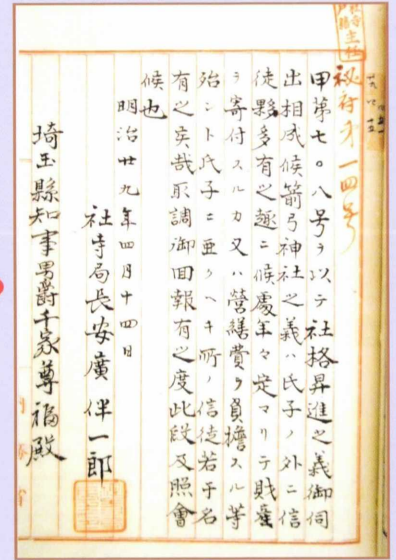 秘府才一四号
甲第七〇八号ヲ以テ社格昇進之義御伺
出相成候箭弓神社之義ハ氏子ノ外ニ信
徒夥多有之趣ニ候處年々定マリテ財産
ヲ寄付スルカ又ハ営繕費ヲ負擔スル等
殆ント氏子ニ亜クヘキ所ノ信徒若干名
有之実哉取調御回報有之度此段及照會
候也
明治廿九年四月十四日
社寺局長安廣伴一郎
埼玉縣知事男爵千家尊福殿